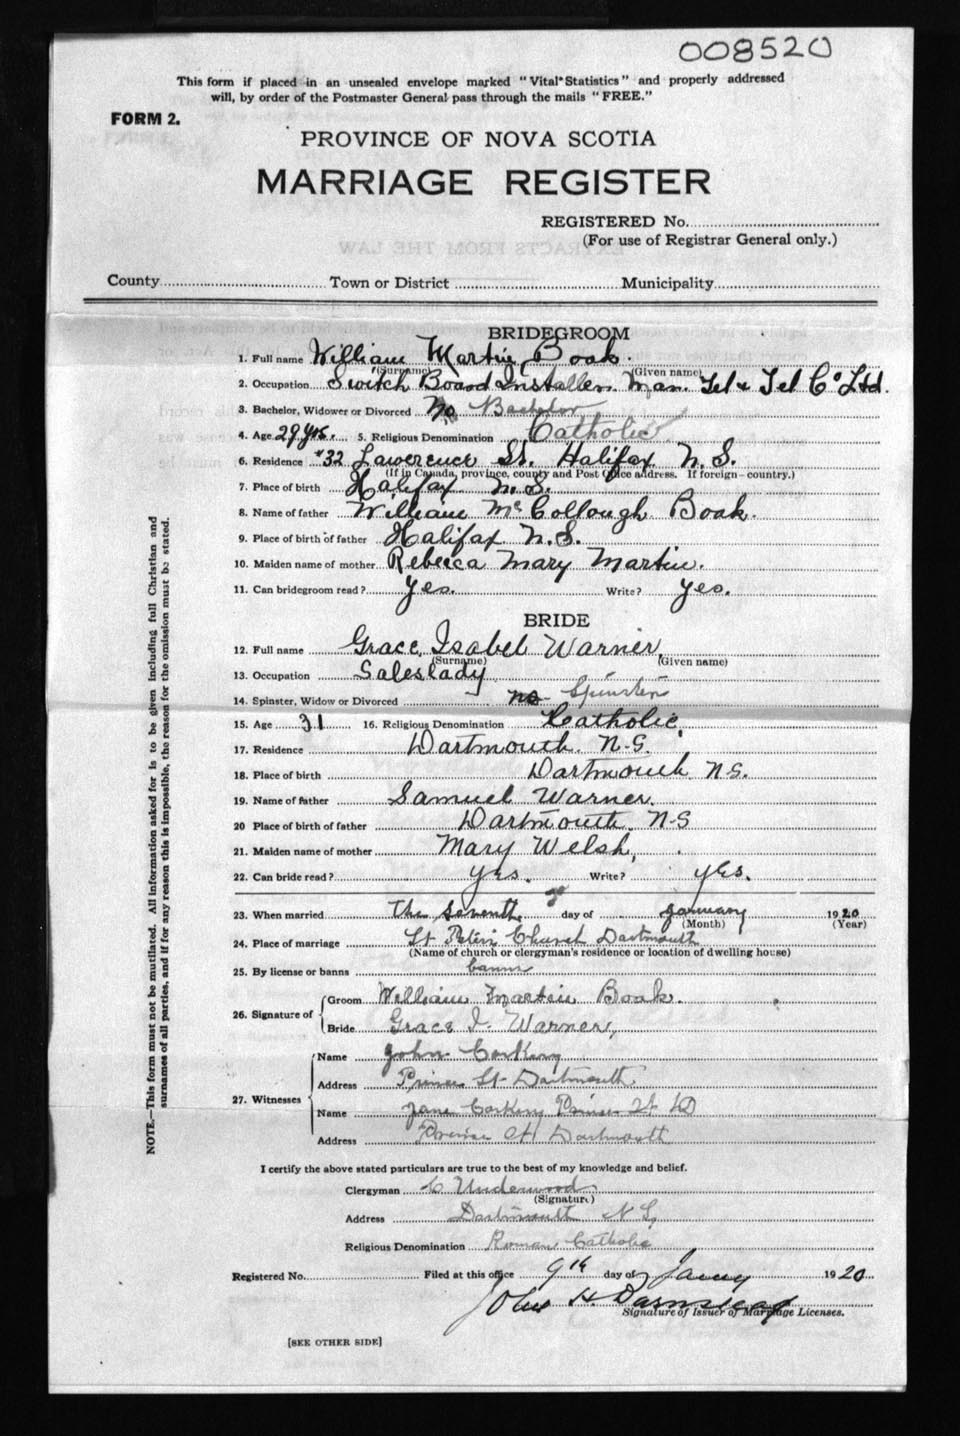 008520
This form if placed in an unsealed envelope marked "Vital Statistics" and properly addressed
will, by order of the Postmaster General pass through the mails "FREE."
FORM 2.
PROVINCE OF NOVA SCOTIA
MARRIAGE REGISTER
REGISTERED No.
(For use of Registrar General only.)
County Town or District Municipality
BRIDEGROOM
1. Full name William Martin Boak.
(Surname) (Given name)
2. Occupation Switch Board Installer. Man. Tel & Tel Co Ltd.
3. Bachelor, Widower or Divorced No Bachelor
4. Age 29 yrs. 5. Religious Denomination Catholic
6. Residence #32 Lawerence St. Halifax N.S.
(If in Canada, province, county and Post Office address. If foreign—country.)
7. Place of birth Halifax N.S.
8. Name of father William McCollough Boak.
9. Place of birth of father Halifax N.S.
10. Maiden name of mother Rebecca Mary Martin.
11. Can bridegroom read? Yes. Write? Yes.
BRIDE
12. Full name Grace Isabel Warner,
(Surname) (Given name)
13. Occupation Saleslady
14. Spinster, Widow or Divorced no Spinster
15. Age 31 16. Religious Denomination Catholic,
17. Residence Dartmouth. N.S.
18. Place of birth Dartmouth N.S.
19. Name of father Samuel Warner.
20 Place of birth of father Dartmouth. N-S
21. Maiden name of mother Mary Welsh,
22. Can bride read? yes. Write? yes.
23. When married The seventh day of January 1920
(Month) (Year)
24. Place of marriage St Peters Church Dartmouth
(Name of church or clergyman's residence or location of dwelling house)
25. By license or banns banns
26. Signature of Groom William Martin Boak.
Bride Grace I. Warner,
27. Witnesses Name John Corkery
Address Prince St Dartmouth
Name Jane Corkery Prince St
Address Prince St Dartmouth
I certify the above stated particulars are true to the best of my knowledge and belief.
Clergyman C Underwood
(Signature)
Address Dartmouth N S,
Religious Denomination Roman Catholic
Registered No. Filed at this office 9th day of Jany 1920
John H. Barnstead
Signature of Issuer of Marriage Licenses.
[SEE OTHER SIDE]
NOTE.—This form must not be mutilated. All information asked for is to be given including full Christian and
surnames of all parties, and if for any reason this is impossible, the reason for the omission must be stated.